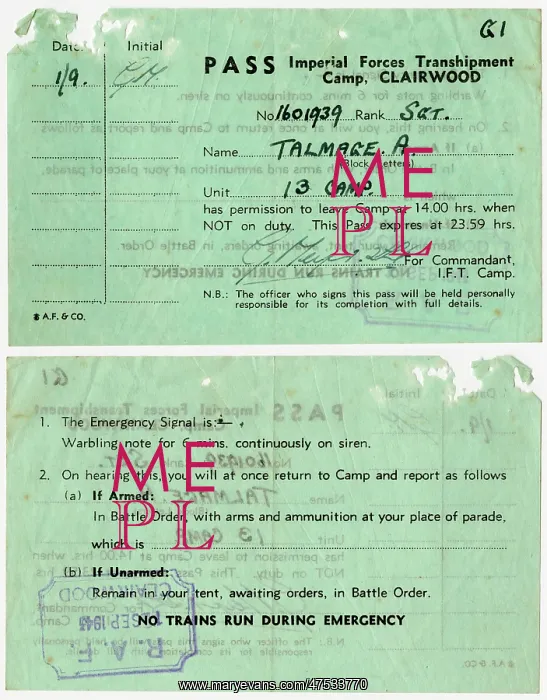 Q1
Date. Initial
1/9.
PASS Imperial Forces Transhipment
Camp, CLAIRWOOD
No. 1601939 Rank SGT.
Name TALMAGE. A.
(Block Letters)
Unit 13 CAMP.
has permission to leave Camp at 14.00 hrs. when
NOT on duty. This Pass expires at 23.59 hrs.
For Commandant,
I.F.T. Camp.
N.B.: The officer who signs this pass will be held personally
responsible for its completion with full details.
A.F. & CO.
ME
PL
1. The Emergency Signal is:—
Warbling note for 6 mins. continuously on siren.
2. On hearing this, you will at once return to Camp and report as follows
(a) If Armed:
In Battle Order, with arms and ammunition at your place of parade,
which is
(b) If Unarmed:
Remain in your tent, awaiting orders, in Battle Order.
NO TRAINS RUN DURING EMERGENCY
ME
PL
CLAIRWOOD
SEP 1943
R A F
www.maryevans.com/47599770